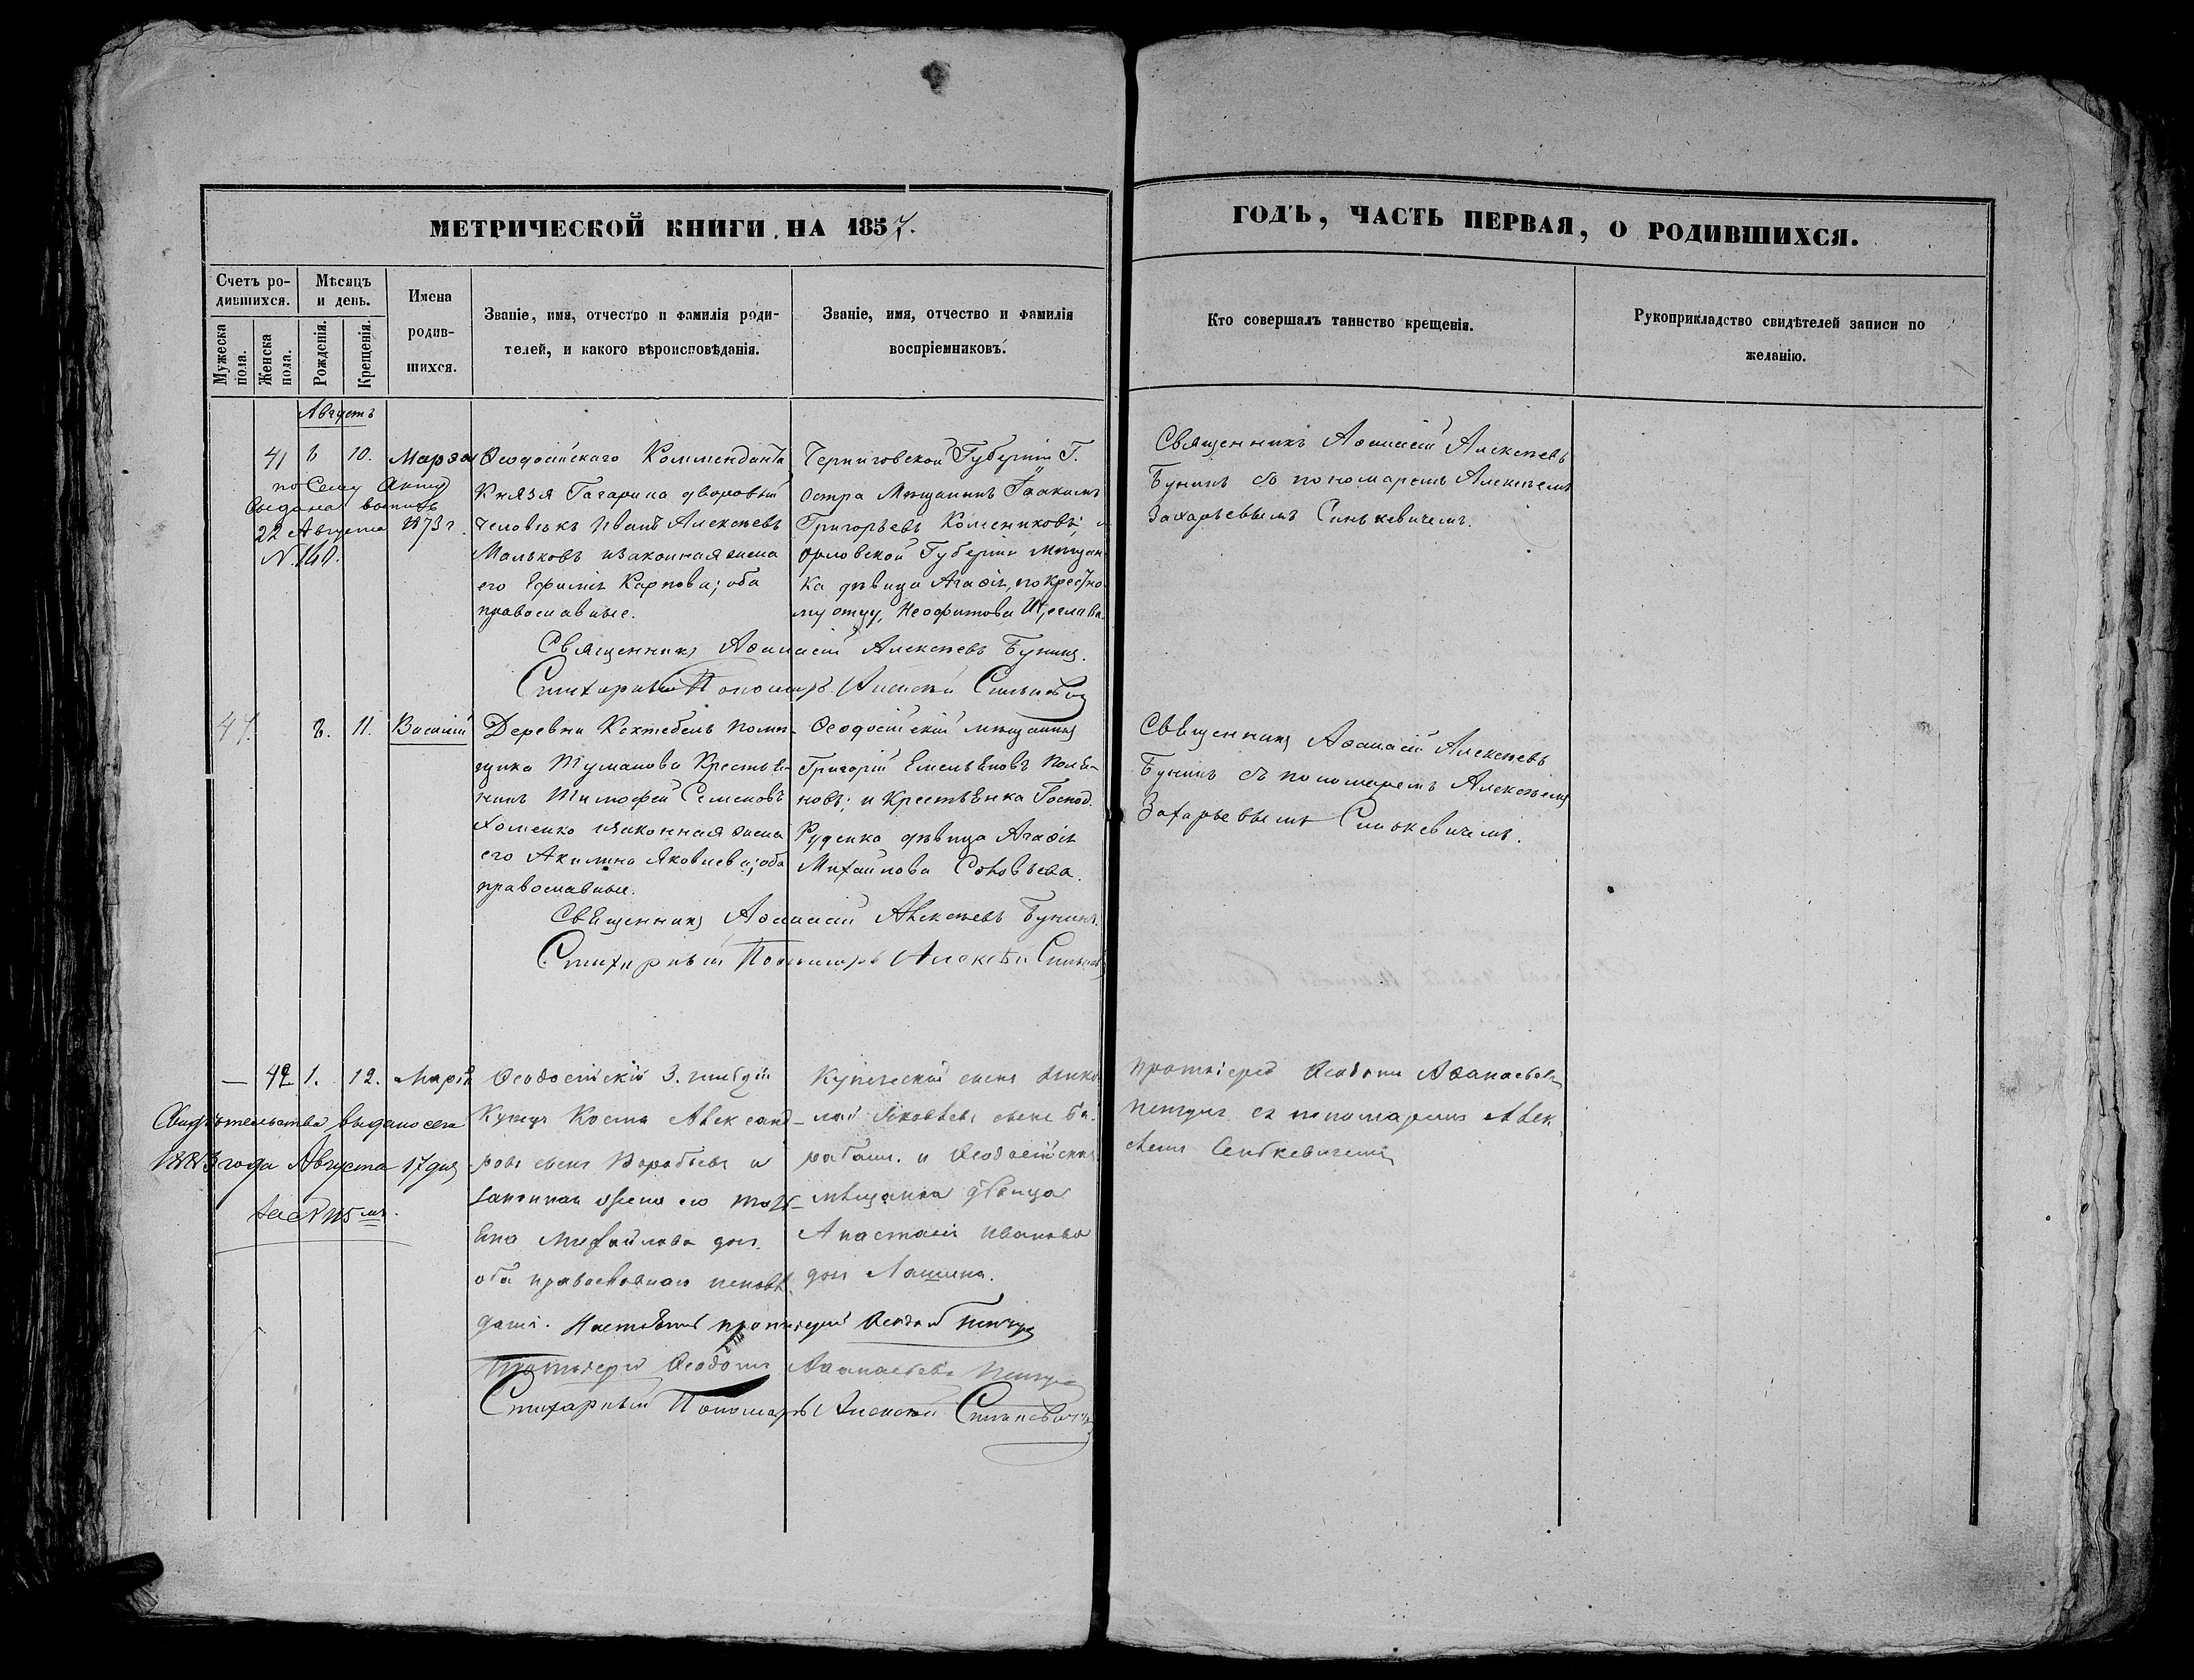 МЕТРИЧЕСКОЙ КНИГИ НА 1857.
Счетъ ро-
дившихся.
Мѣсяцъ
и день.
Имена
родив-
шихся.
Званіе, имя, отчество и фамилія роди-
телей, и какого вѣроисповѣданія.
Званіе, имя, отчество и фамилія
воспріемниковъ.
Мужеска
пола.
Женска
пола.
Рожденія.
Крещенія.
Августъ
41 6 10. Марѳа
по Сему Акту
выдана выпись
22 Августа 1873 г.
N. 140.
Ѳеодосійскаго Комменданта
Князя Гагарина дворовый
человѣкъ Иванъ Алексѣевъ
Мальковъ и законная жена
его Ефимія Карпова; оба
православные.
Черниговской Губерніи Г.
Остра Мѣщанинъ Іоакимъ
Григорьевъ Колесниковъ и
Орловской Губерніи мѣщан-
ка дѣвица Агаѳія, по крестно-
му отцу, Неофитова
Священникъ Аѳанасій Алексѣевъ Бунинъ.
Стихарный Пономарь Алексѣй Синькевичъ
47. 8. 11. Василій
Деревни Коктебель помѣ-
щика Туманова Крестья-
нинъ Тимофей Семеновъ
Хоменко и законная жена
его Акилина Яковлева; оба
православные.
Ѳеодосійскій мѣщанинъ
Григорій Емельяновъ Поля-
новъ; и Крестьянка Господ.
Руденка дѣвица Агаѳія
Михайлова Соловьева.
Священникъ Аѳанасій Алексѣевъ Бунинъ.
Стихарный Пономарь Алексѣй
— 42 1. 12. Марія
Свидѣтельство выдано сего
1883 года Августа 17 дня
за № 115 мъ.
Ѳеодосійскій 3. гильдіи
Купецъ Косма Александ-
ровъ сынъ Воробьевъ и
законная жена его Тать-
яна Михайлова доч.
оба православнаго исповѣ-
данія. Настоятель протоіерей
Купеческій сынъ Нико-
лай Яковлевъ сынъ
и Ѳеодосійская
мѣщанка дѣвица
Анастасія Иванова
доч Лашина.
Протоіерей
Стихарный Пономарь Алексѣй Синькевичъ
ГОДЪ, ЧАСТЬ ПЕРВАЯ, О РОДИВШИХСЯ.
Кто совершалъ таинство крещенія.
Рукоприкладство свидѣтелей записи по
желанію.
Священникъ Аѳанасій Алексѣевъ
Бунинъ съ пономаремъ Алексѣемъ
Захарьевымъ Синькевичемъ.
Священникъ Аѳанасій Алексѣевъ
Бунинъ съ пономаремъ Алексѣемъ
Захарьевымъ Синькевичемъ.
Протоіерей
съ пономаремъ Алек
сѣемъ Синькевичемъ